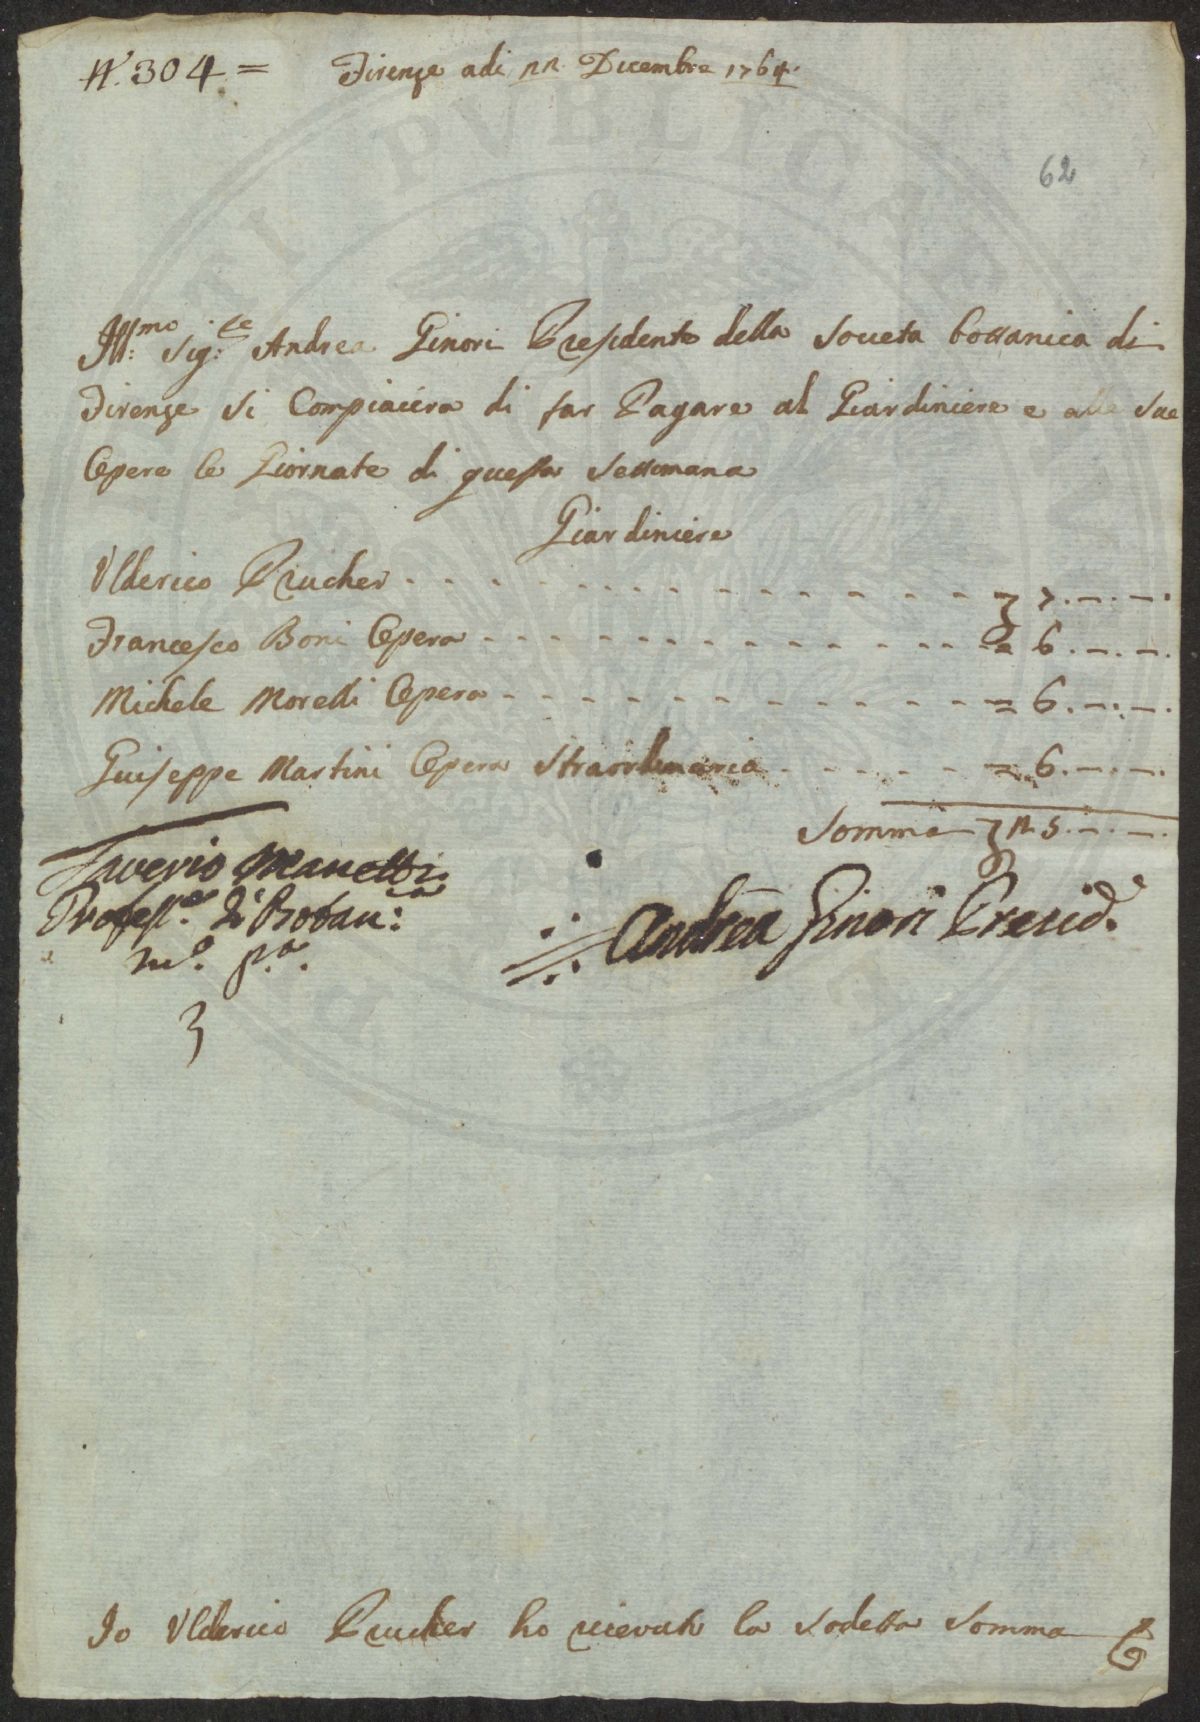 N.° 304 = Firenze adi 22 Dicembre 1764.
62
Ill:mo Sig:re Andrea Ginori Presidente della Società bottanica di
Firenze si Compiacera di far Pagare al Giardiniere e alle sue
Opere le Giornate di questa settimana
Giardiniere
Vlderico Prucher - - - 7. — . — .
Francesco Boni Opera - - - = 6. — . — .
Michele Morelli Opera - - - = 6. — . — .
Giuseppe Martini Opera Straordinaria - - - = 6. — . — .
Somma 25. — . — .
Saverio Manetti
Profess.re di Botan:ca
m.o p.a
Andrea Ginori Presid.e
3
Io Vlderico Prucher ho ricevuto la sodetta somma